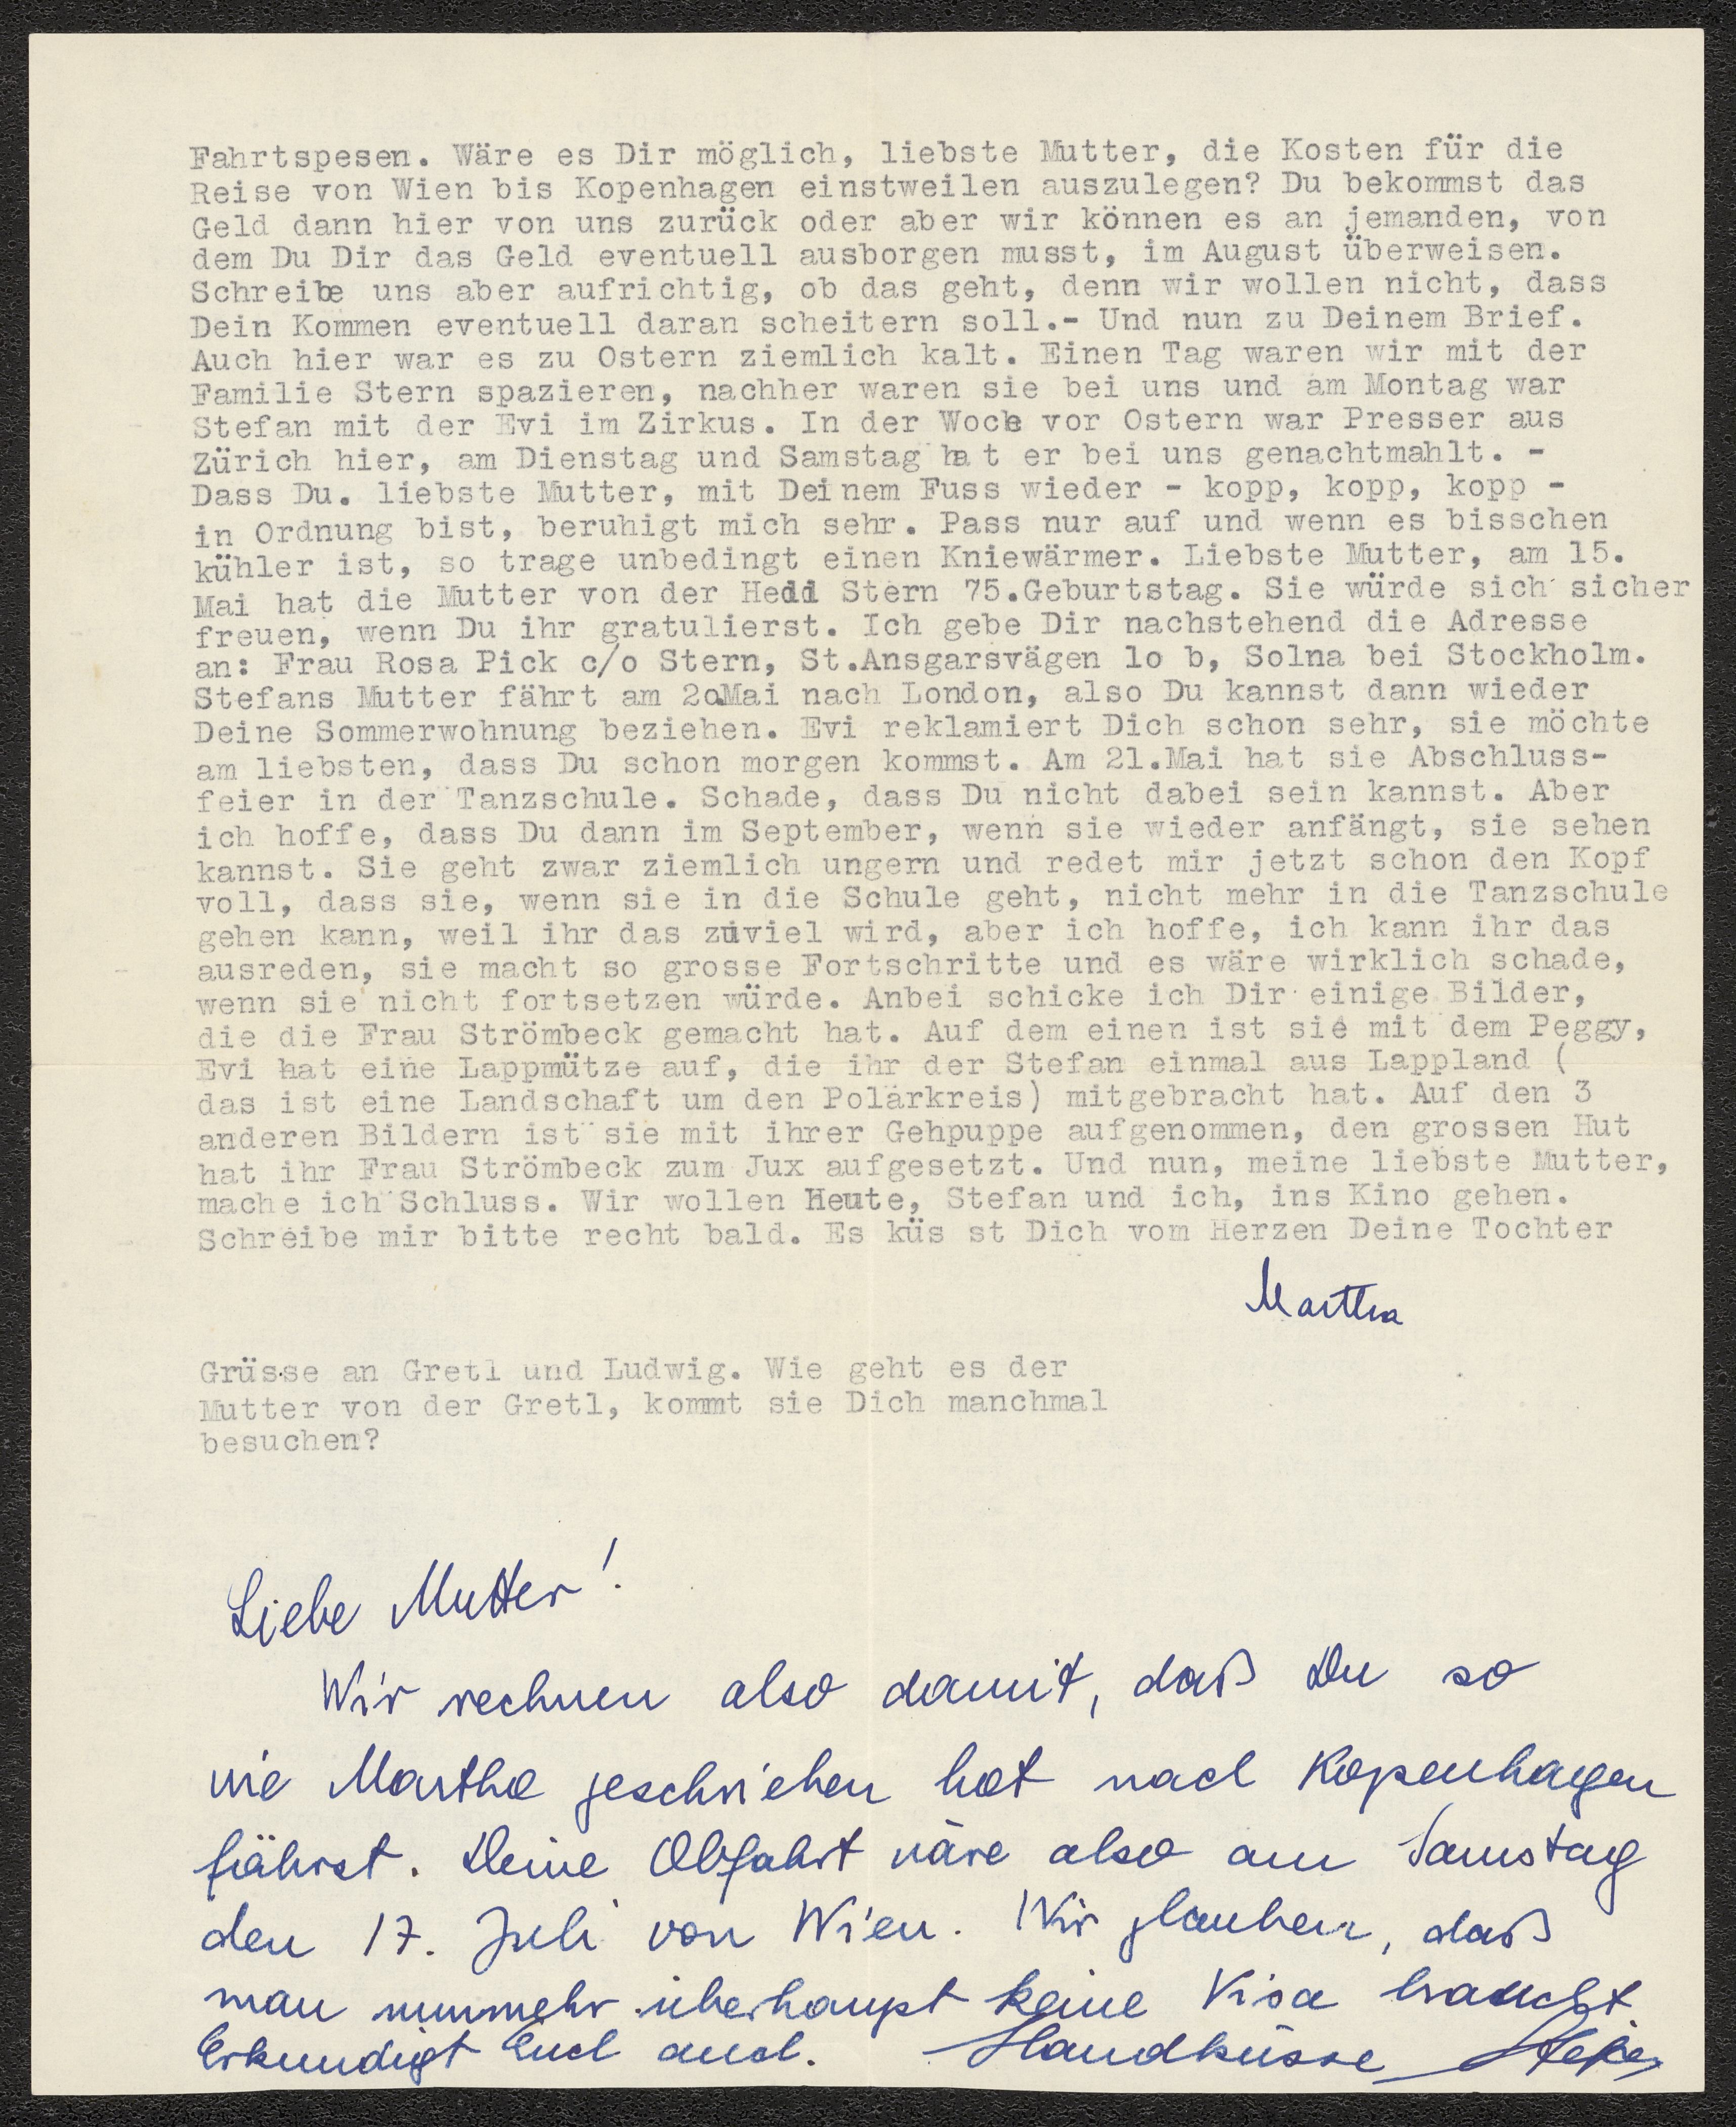 Fahrtspesen. Wäre es Dir möglich, liebste Mutter, die Kosten für die
Reise von Wien bis Kopenhagen einstweilen auszulegen? Du bekommst das
Geld dann hier von uns zurück oder aber wir können es an jemanden, von
dem Du Dir das Geld eventuell ausborgen musst, im August überweisen.
Schreibe uns aber aufrichtig, ob das geht, denn wir wollen nicht, dass
Dein Kommen eventuell daran scheitern soll.- Und nun zu Deinem Brief.
Auch hier war es zu Ostern ziemlich kalt. Einen Tag waren wir mit der
Familie Stern spazieren, nachher waren sie bei uns und am Montag war
Stefan mit der Evi im Zirkus. In der Woche vor Ostern war Presser aus
Zürich hier, am Dienstag und Samstag hat er bei uns genachtmahlt. -
Dass Du. liebste Mutter, mit Deinem Fuss wieder - kopp, kopp, kopp -
in Ordnung bist, beruhigt mich sehr. Pass nur auf und wenn es bisschen
kühler ist, so trage unbedingt einen Kniewärmer. Liebste Mutter, am 15.
Mai hat die Mutter von der Heddi Stern 75.Geburtstag. Sie würde sich sicher
freuen, wenn Du ihr gratulierst. Ich gebe Dir nachstehend die Adresse
an: Frau Rosa Pick c/o Stern, St.Ansgarsvägen lo b, Solna bei Stockholm.
Stefans Mutter fährt am 2o.Mai nach London, also Du kannst dann wieder
Deine Sommerwohnung beziehen. Evi reklamiert Dich schon sehr, sie möchte
am liebsten, dass Du schon morgen kommst. Am 21.Mai hat sie Abschluss-
feier in der Tanzschule. Schade, dass Du nicht dabei sein kannst. Aber
ich hoffe, dass Du dann im September, wenn sie wieder anfängt, sie sehen
kannst. Sie geht zwar ziemlich ungern und redet mir jetzt schon den Kopf
voll, dass sie, wenn sie in die Schule geht, nicht mehr in die Tanzschule
gehen kann, weil ihr das zuviel wird, aber ich hoffe, ich kann ihr das
ausreden, sie macht so grosse Fortschritte und es wäre wirklich schade,
wenn sie nicht fortsetzen würde. Anbei schicke ich Dir einige Bilder,
die die Frau Strömbeck gemacht hat. Auf dem einen ist sie mit dem Peggy,
Evi hat eine Lappmütze auf, die ihr der Stefan einmal aus Lappland (
das ist eine Landschaft um den Polarkreis) mitgebracht hat. Auf den 3
anderen Bildern ist sie mit ihrer Gehpuppe aufgenommen, den grossen Hut
hat ihr Frau Strömbeck zum Jux aufgesetzt. Und nun, meine liebste Mutter,
mache ich Schluss. Wir wollen Heute, Stefan und ich, ins Kino gehen.
Schreibe mir bitte recht bald. Es küs st Dich vom Herzen Deine Tochter
Martha
Grüsse an Gretl und Ludwig. Wie geht es der
Mutter von der Gretl, kommt sie Dich manchmal
besuchen?
Liebe Mutter!
Wir rechnen also damit, daß Du so
wie Martha geschrieben hat nach Kopenhagen
fährst. Deine Abfahrt wäre also am Samstag
den 17. Juli von Wien. Wir glauben, daß
man nunmehr überhaupt keine Visa braucht
Erkundigt Euch auch. Handküsse